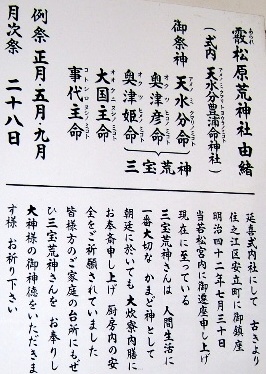 霰松原荒神社 由緒
(式内 天水分豊浦命神社)
御祭神 天水分命 神
奥津彦命 荒
奥津姫命 宝
大国主命 三
事代主命
例祭 正月・五月・九月
月次祭 二十八日
延喜式内社にして 古きより
住之江区安立町に御鎮座
明治四十二年七月三十日
当若松宮内に御遷座申し上げ
現在に至っている
三宝荒神さんは 人間生活に
一番大切な かまど神として
朝廷に於いても 大炊寮内膳に
お奉斎申し上げ 厨房内の安
全をご祈願されていました
皆様方のご家庭の台所にもぜ
ひ三宝荒神さんを お奉りし
大神様の御神徳をいただきま
す様 お祈り下さい